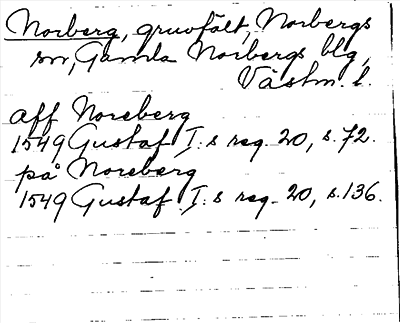 Norberg, gruvfält, Norbergs
sn, Gamla Norbergs blg,
Västm. l.
aff Noreberg
1549 Gustaf I:s reg. 20, s. 72.
på Noreberg
1549 Gustaf I:s reg. 20, s. 136.